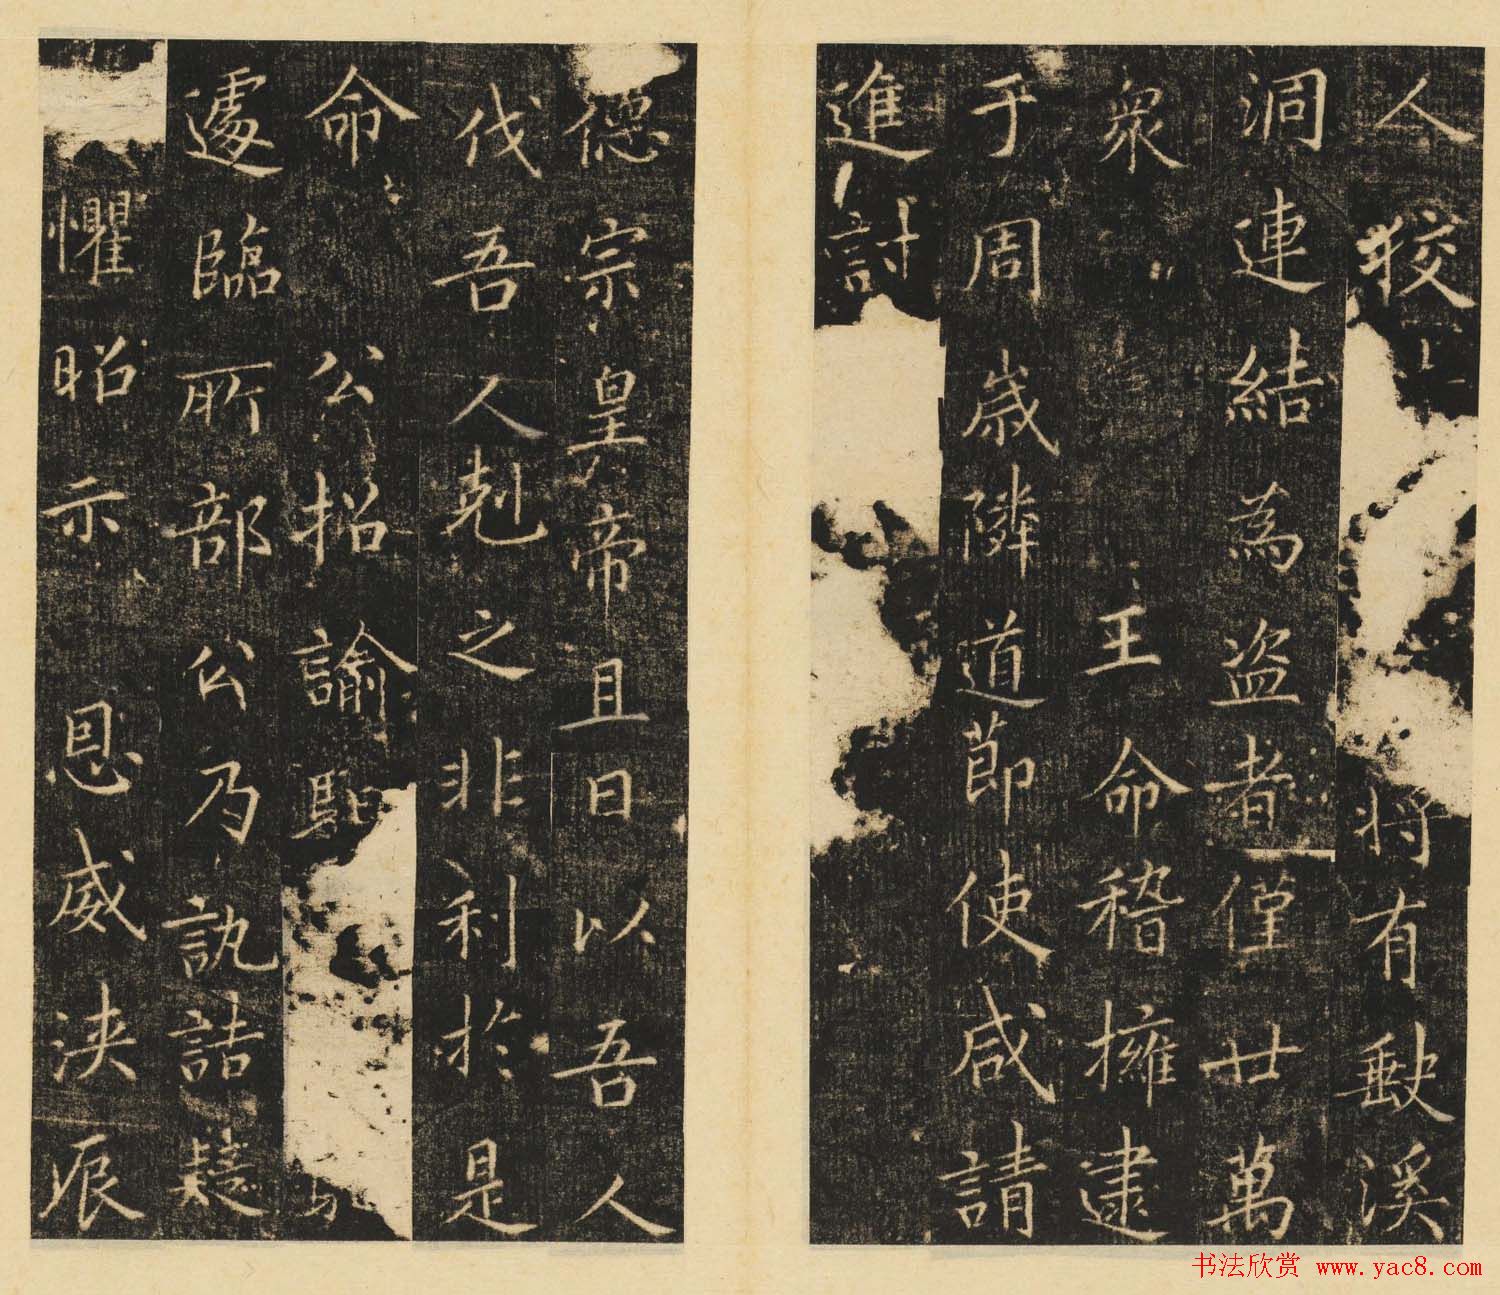 人狡將有獸溪
洞連結為盜者僅廿萬
眾王命稽擁逮
于周歲隣道節使咸請
進討
德宗皇帝且曰以吾人
伐吾人剋之非利於是
命公招諭
遽臨所部公乃訊詰疑
懼昭示恩威浹辰
书法欣赏 www.yac8.com